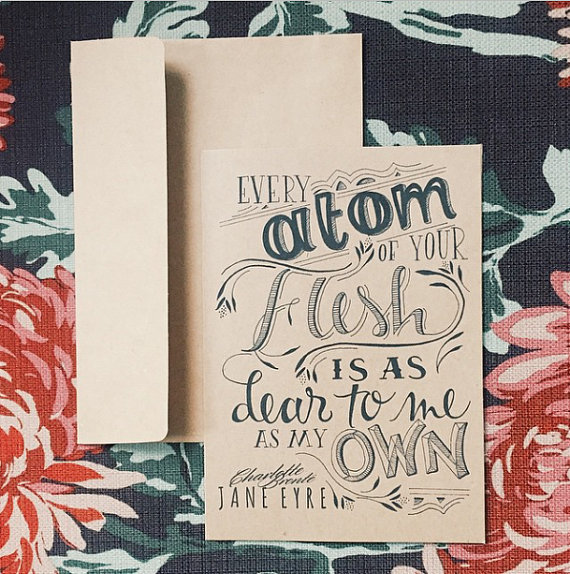 EVERY
atom
OF YOUR
Flesh
IS AS
dear to me
AS MY OWN
Charlotte
Bronte
JANE EYRE